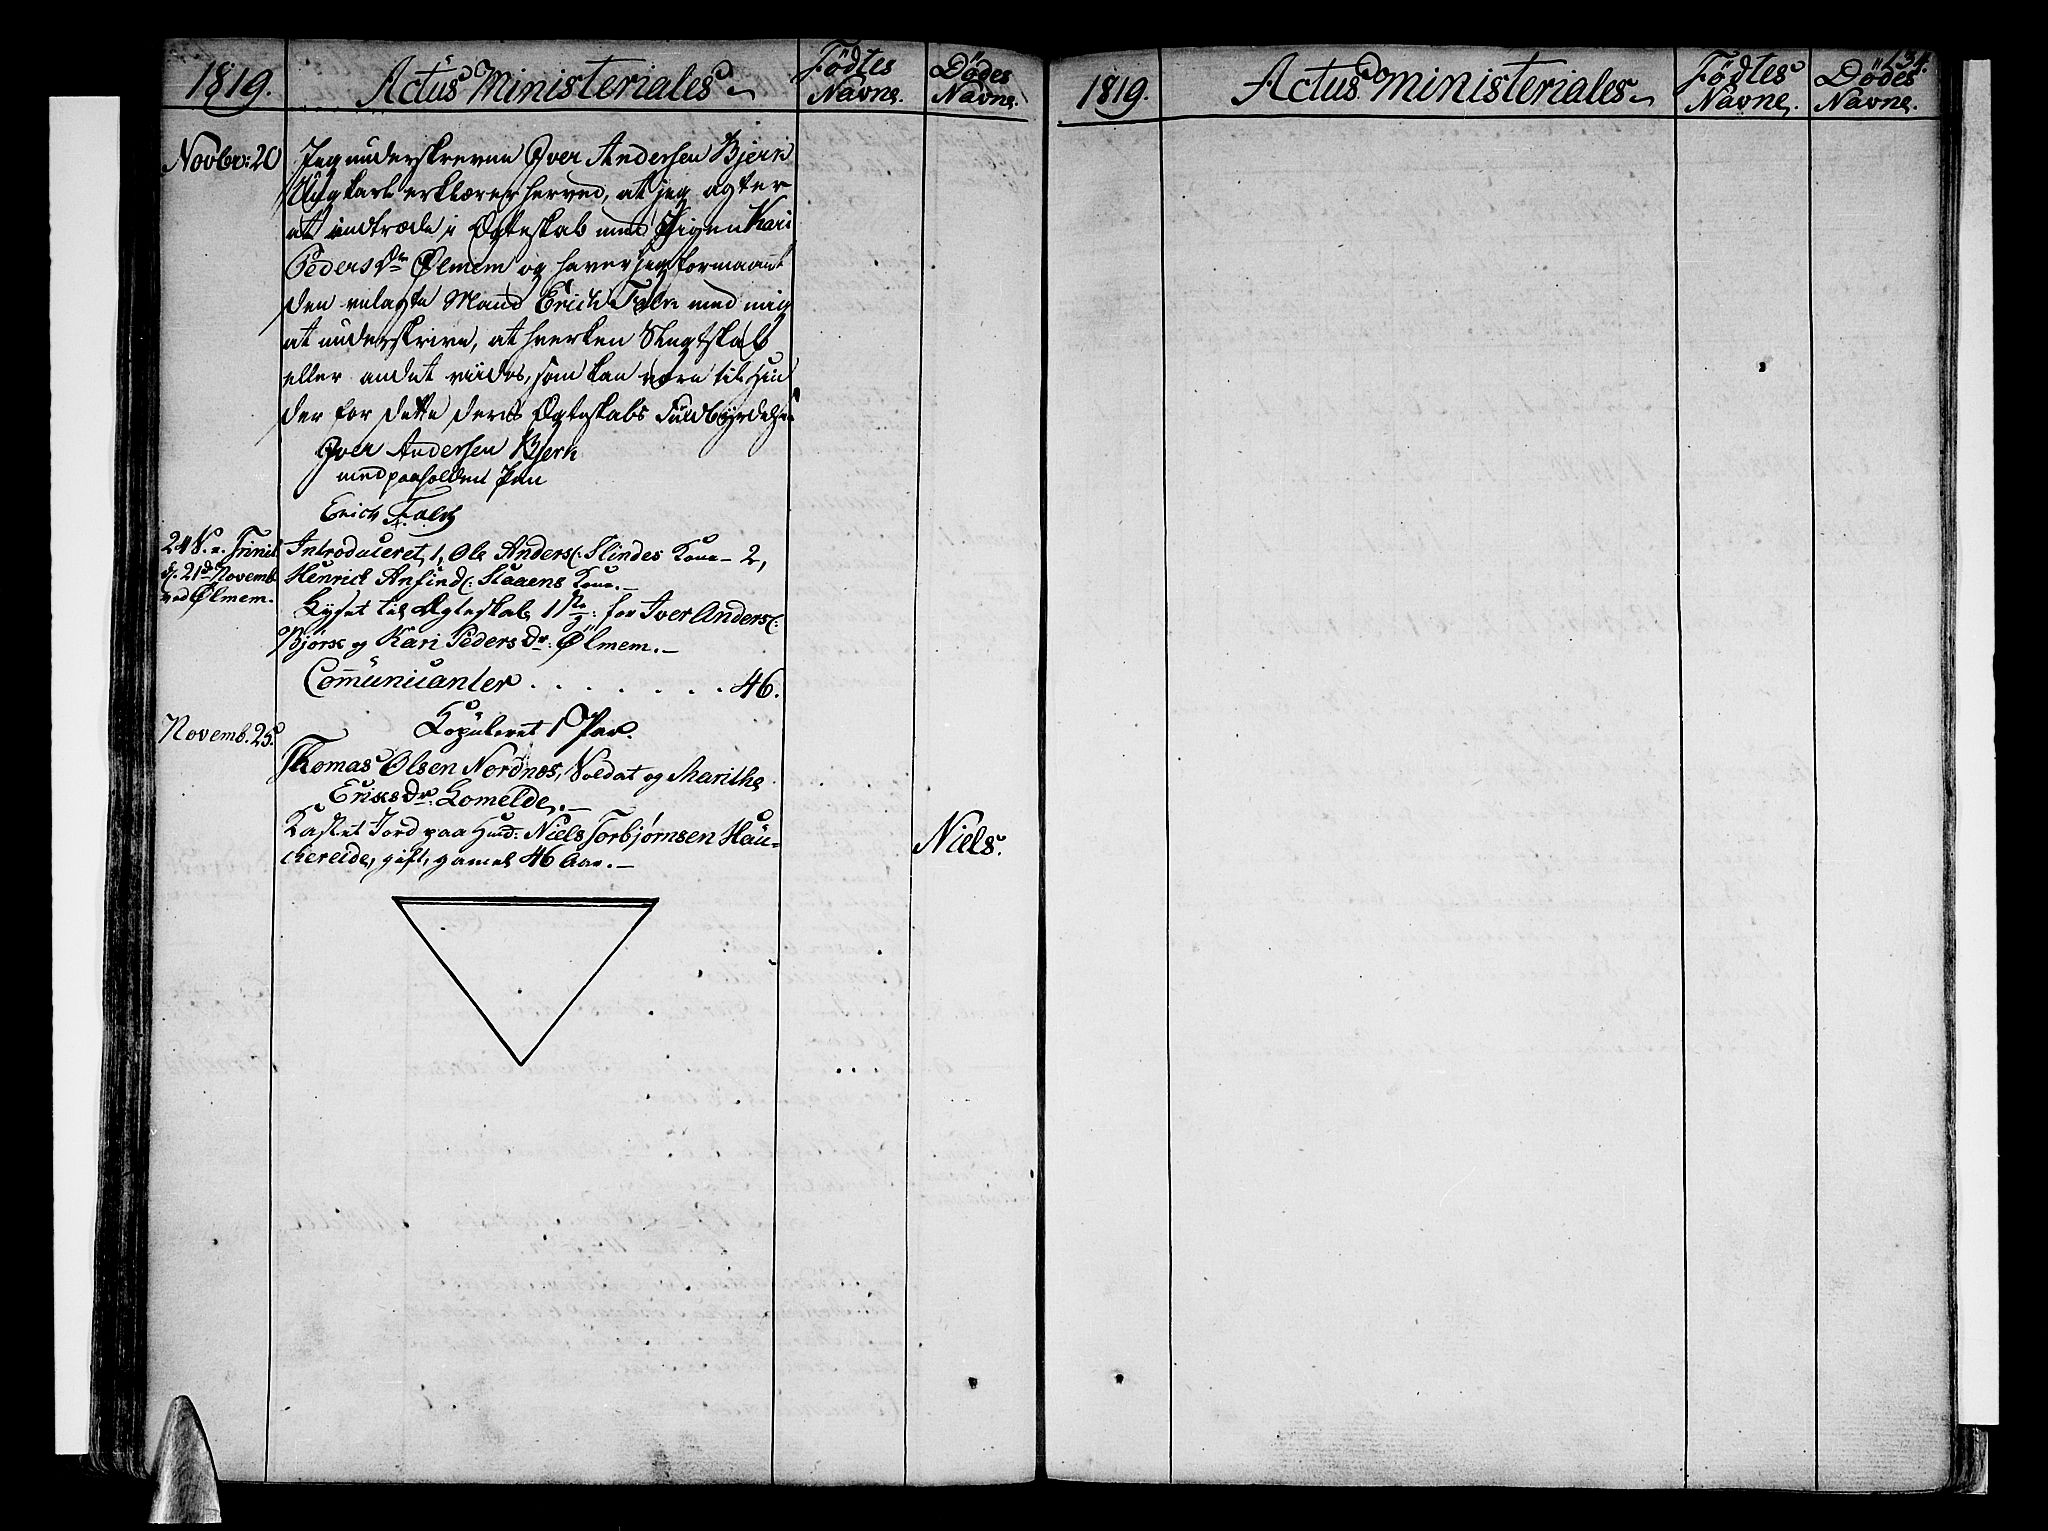 1819.
Actus Ministeriales
Födtes Navne.
Dödes Navne.
Novbr: 20
Jeg underskrevne Iver Andersen Bjerk
Ungkarl erklærer herved, at jeg agter
at indtræde i Ægteskab med Pigen Kari
Peders Dr Ølmem og haver jeg formaaet
den velagte Mand Erich Falk med mig
at underskrive, at hverken Slegtskab
eller andet viides, som kan være til Hin
der for dette deris Ægteskabs Fuldbÿrdelse
Iver Andersen Bjerk
med paaholden Pen
Erich Falch
24 S. e. Trinit
d. 21de Novemb.
ved Ølmem.
Introduceret 1, Ole Anders: Slindes Kone - 2,
Henrick Anfind: Staaens Kone. -
Lyset til Ægteskab 1ste g: for Iver Anders:
Bjørk og Kari Peders Dr: Ølmem. -
Com̄unicanter . . . . . . . 46.
Novemb. 25.
Copuleret 1 Par.
Thomas Olsen Nordnes, Soldat og Marithe
Eriks Dr: Lomelde. -
Kastet Jord paa Huusmd: Niels Torbjørnsen Hau-
chereide, gift, gamel 46 Aar. -
Niels.
1819.
Actus Ministeriales
Födtes Navne.
134.
Dödes Navne.